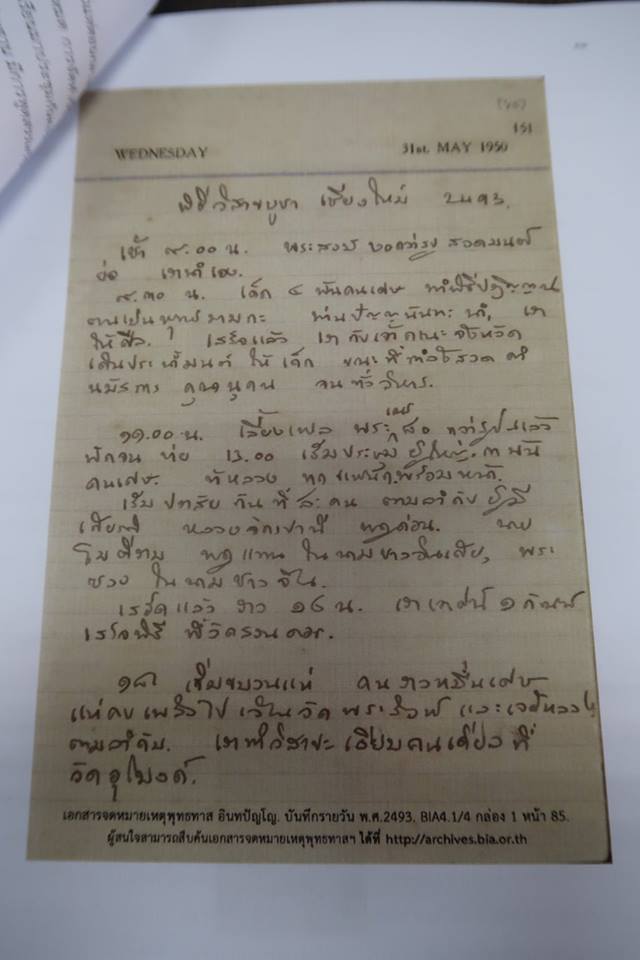 (40)
151
WEDNESDAY 31st. MAY 1950
พิธีวิสาขบูชา เชียงใหม่ ๒๔๙๓.
เช้า ๙.00 น. พระสงฆ์ ๖๐กว่ารูป สวดมนต์
ย่อ เทศน์เอง.
๙.๓๐ น. เด็ก ๔ พันคนเศษ ทำพิธีปฏิญาณ
ตนเป็นพุทธมามกะ ท่านปัญญานันทะ นำ, เรา
ให้ศีล. เสร็จแล้ว เรากับเจ้าคณะจังหวัด
เดินประน้ำมนต์ ให้เด็ก ขณะที่กำลังสวด คำ
นมัสการ คุณานุคุณ จนทั่ววิหาร.
๑๑.00 น. เลี้ยงเพล พระเณร ๘๐ กว่ารูปแล้ว
พักจน บ่าย 13.00 เริ่มประชุมผู้ใหญ่. ๓ พัน
คนเศษ. ข้าหลวง ทุกแพนกพร้อมหน้า.
เริ่มปราศัย กันทีละคน ตามลำดับ ผู้มี
เสียง หลวง พูดก่อน. นาย
พูดแทน ในนามชาวอินเดีย, พระ
ซวง ในนามชาวจีน.
เสร็จแล้ว ราว ๑๕ น. เราเทศน์ ๑ กัณฑ์
เสร็จพิธี ที่วัดสวนดอก.
๑๘ เริ่มขบวนแห่ คนราวหมื่นเศษ
แห่คบเพลิงไป เวียนวัดพระสิงห์ และเจดีย์หลวง
ตามลำดับ. เราทำวิสาขะเงียบคนเดียวที่
วัดอุโมงค์.
เอกสารจดหมายเหตุพุทธทาส อินทปัญโญ. บันทึกรายวัน พ.ศ.2493. BIA4.1/4 กล่อง 1 หน้า 85.
ผู้สนใจสามารถสืบค้นเอกสารจดหมายเหตุพุทธทาสฯ ได้ที่ http://archives.bia.or.th